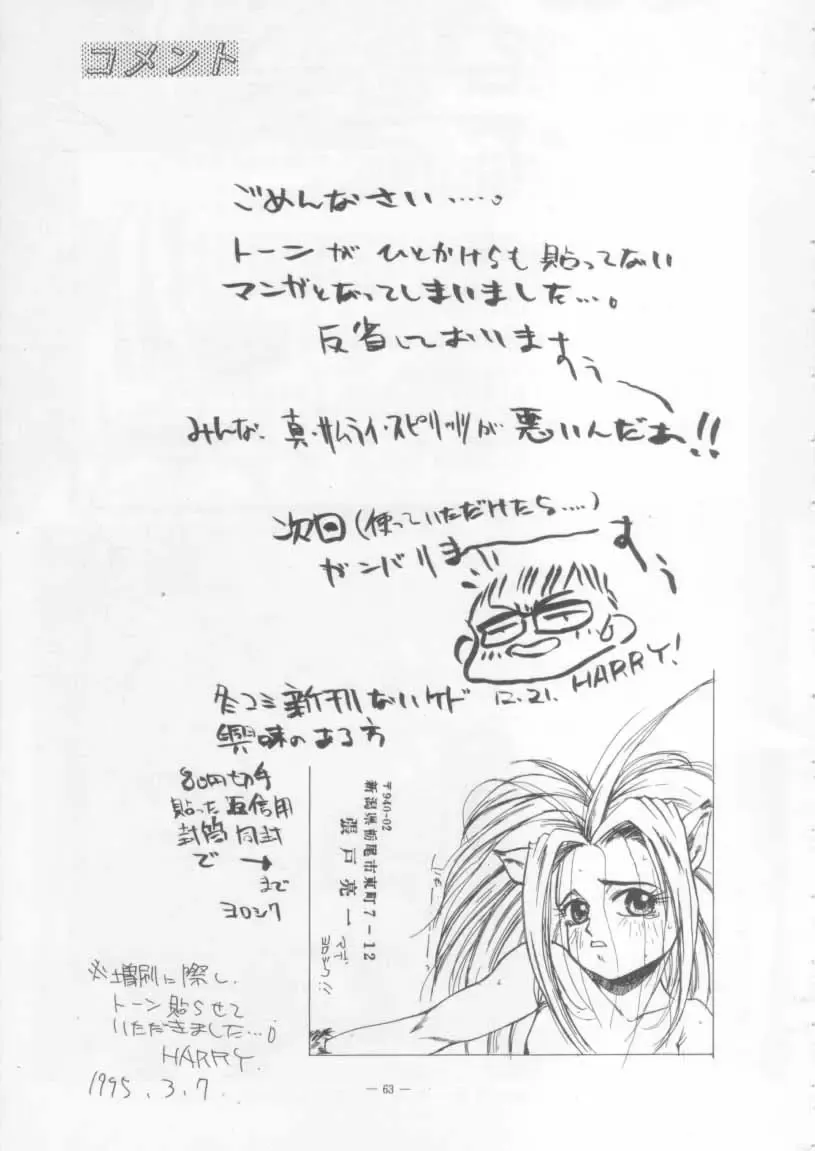 コメント
ごめんなさい……。
トーンがひとかけらも貼ってない
マンガとなってしまいました…。
反省しております
すぅ
みんな、真・サムライ・スピリッツが悪いんだぁ!!
次回(使っていただけたら……)
ガンバリます
すぅ
HARRY!
12.21.
冬コミ新刊ないケド
興味のある方
80円切手
貼った返信用
封筒同封
で→
まで
ヨロシク
〒940-02
新潟県栃尾市東町7-12
張戸亮一
マデ
ヨロシク!!
※増刷に際し、
トーン貼らせて
いただきました…。
HARRY.
1995.3.7.
— 63 —